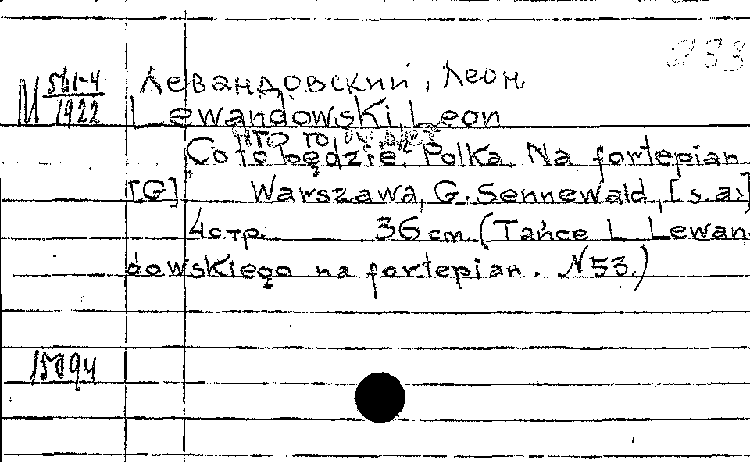 М 561-4
1922
Левандовский, Леон
Lewandowski, Leon
Что то
Coś będzie. Polka. Na fortepian.
[G] Warszawa, G. Sennewald, [s.a.]
4 стр. 36 cm. (Tańce L. Lewan-
dowskiego na fortepian. N53.)